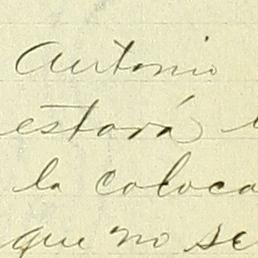 Antonio
estará
la coloca
que no se